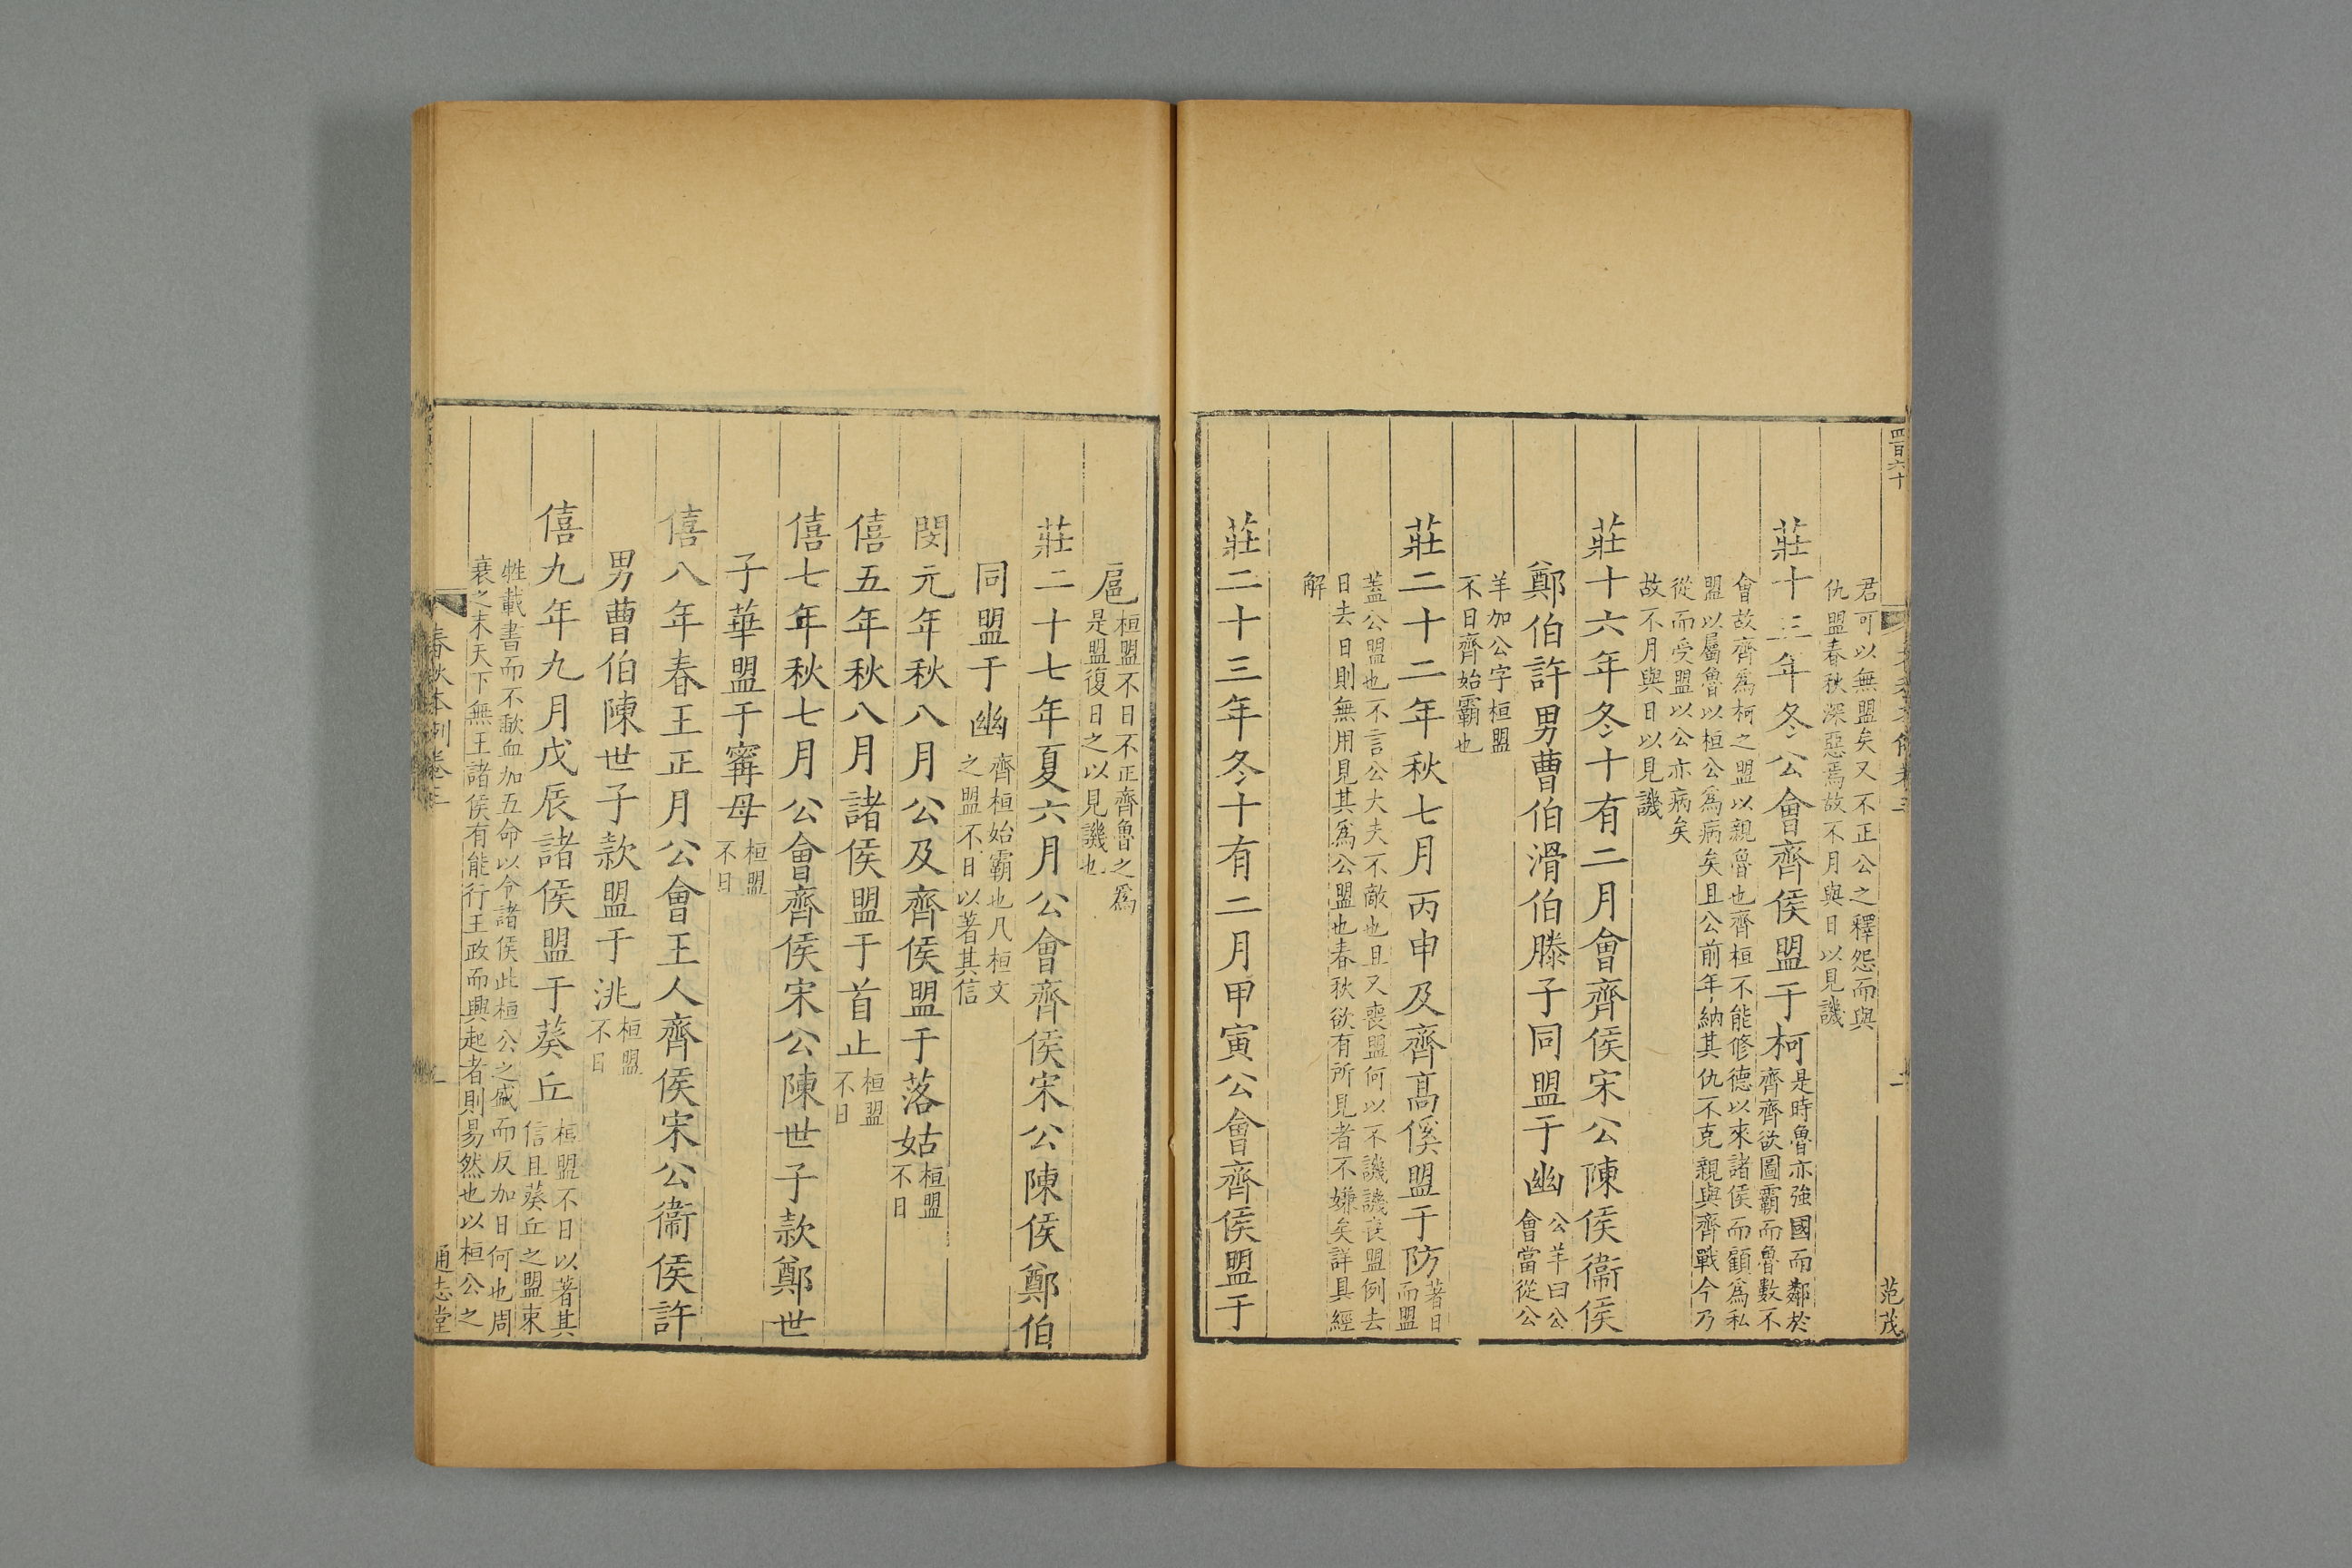 四百六十
范茂
君可以無盟矣又不正公之釋怨而與
仇盟春秋深惡焉故不月與日以見譏
莊十三年冬公會齊侯盟于柯是時魯亦強國而鄰於
齊齊欲圖霸而魯數不
會故齊為柯之盟以親魯也齊桓不能修德以來諸侯而顧為私
盟以屬魯以桓公為病矣且公前年納其仇不克親與齊戰今乃
從而受盟以公亦病矣
故不月與日以見譏
莊十六年冬十有二月會齊侯宋公陳侯衞侯
鄭伯許男曹伯滑伯滕子同盟于幽公羊曰公
會當從公
羊加公字桓盟
不日齊始霸也
莊二十二年秋七月丙申及齊高傒盟于防著日
而盟
蓋公盟也不言公大夫不敵也且又喪盟何以不譏譏喪盟例去
日去日則無用見其為公盟也春秋欲有所見者不嫌矣詳具經
解
莊二十三年冬十有二月甲寅公會齊侯盟于
扈桓盟不日不正齊魯之為
是盟復日之以見譏也
莊二十七年夏六月公會齊侯宋公陳侯鄭伯
同盟于幽齊桓始霸也凡桓文
之盟不日以著其信
閔元年秋八月公及齊侯盟于落姑桓盟
不日
僖五年秋八月諸侯盟于首止桓盟
不日
僖七年秋七月公會齊侯宋公陳世子款鄭世
子華盟于寗母桓盟
不日
僖八年春王正月公會王人齊侯宋公衞侯許
男曹伯陳世子款盟于洮桓盟
不日
僖九年九月戊辰諸侯盟于葵丘桓盟不日以著其
信且葵丘之盟束
牲載書而不歃血加五命以令諸侯此桓公之盛而反加日何也周
衰之末天下無王諸侯有能行王政而興起者則易然也以桓公之
春秋本例卷三
通志堂